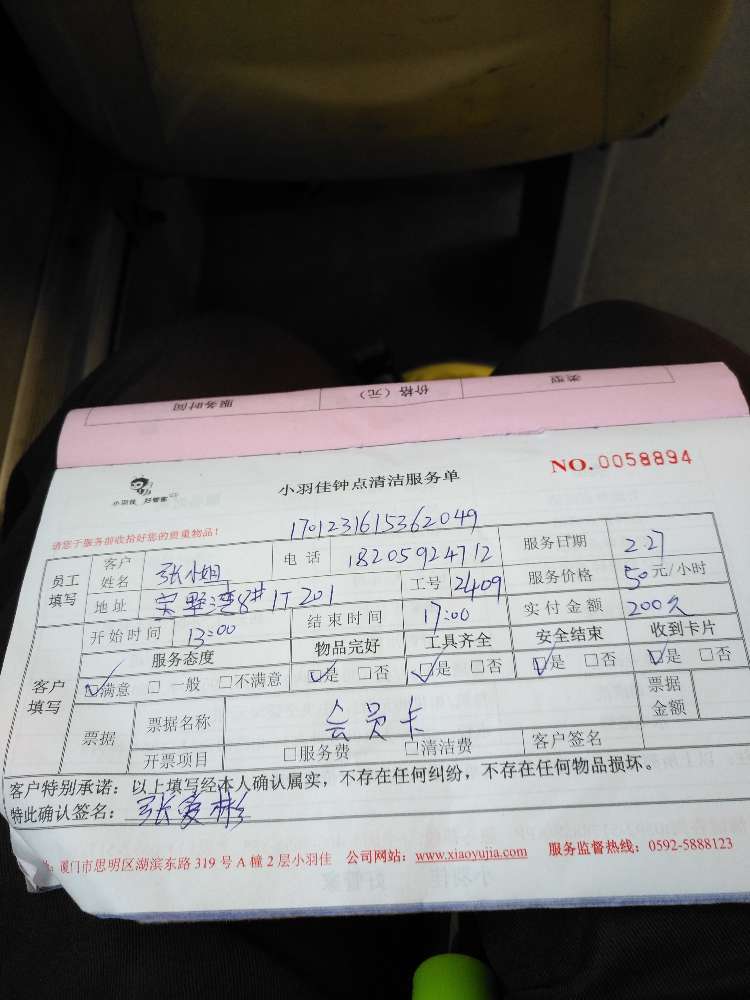 类型 价格（元） 服务时间
小羽佳 好管家
小羽佳钟点清洁服务单
NO.0058894
请您于服务前收拾好您的贵重物品！
1701231615362049
员工填写 客户姓名 张小姐 电话 18205924712 服务日期 2.27
地址 8# 1T 201 工号 2409 服务价格 50元/小时
客户填写 开始时间 13:00 结束时间 17:00 实付金额 200
服务态度 物品完好 工具齐全 安全结束 收到卡片
☑满意 □一般 □不满意 ☑是 □否 ☑是 □否 ☑是 □否 ☑是 □否
票据 票据名称 会员卡 票据金额
开票项目 □服务费 □清洁费 客户签名
客户特别承诺：以上填写经本人确认属实，不存在任何纠纷，不存在任何物品损坏。
特此确认签名：张爱彬
厦门市思明区湖滨东路319号A幢2层小羽佳 公司网站：www.xiaoyujia.com 服务监督热线：0592-5888123